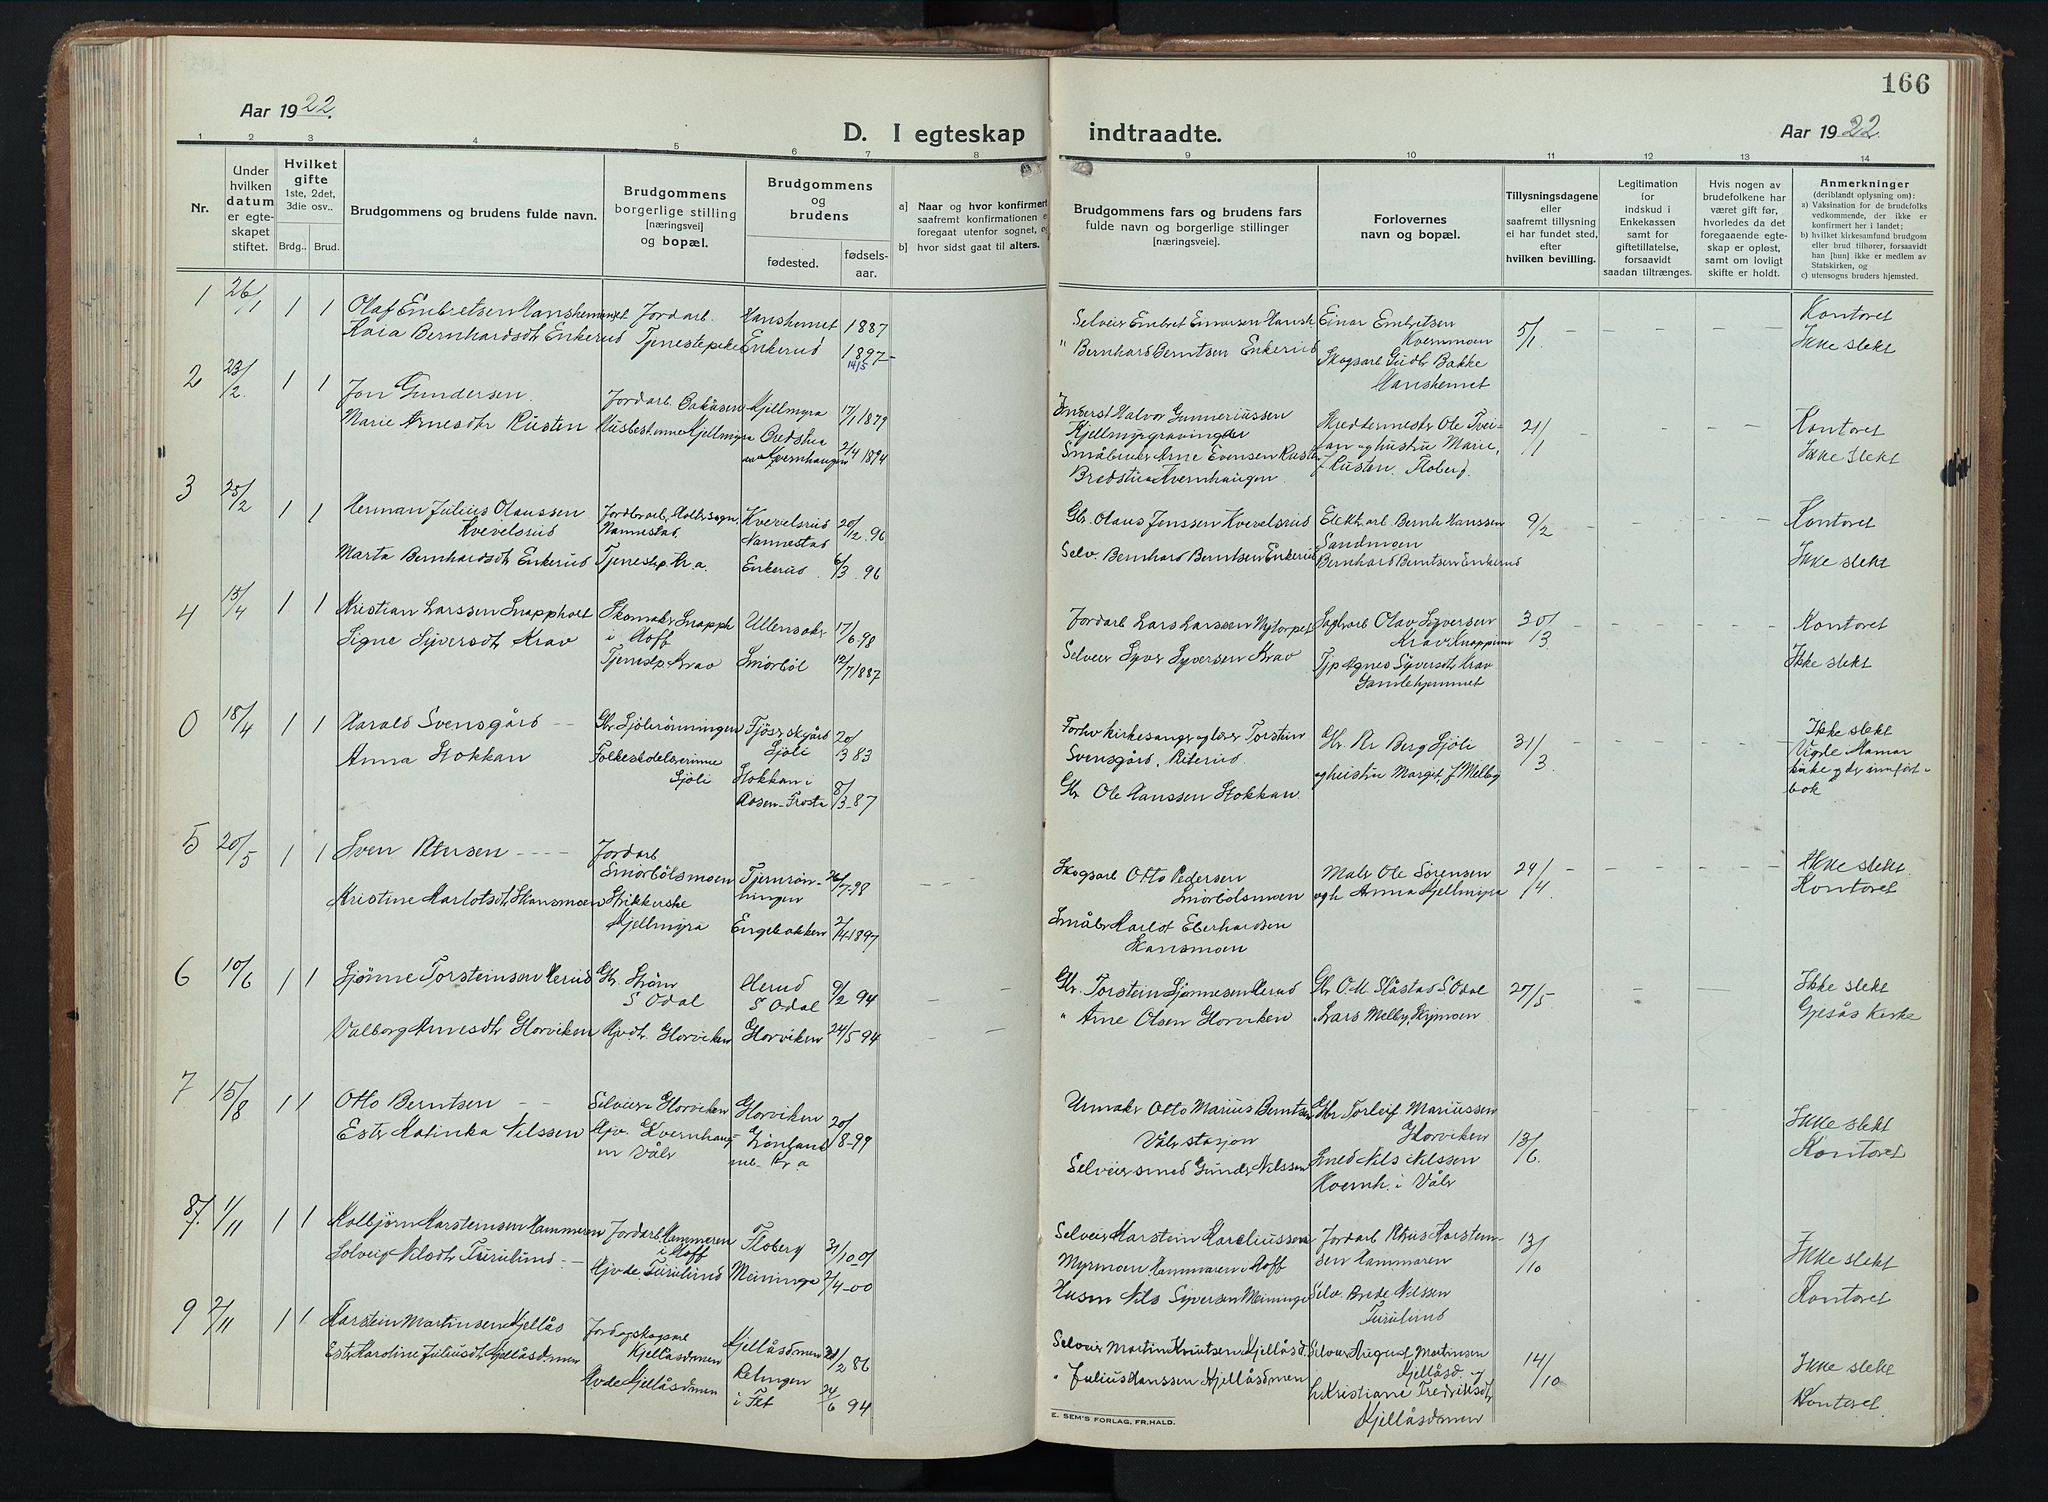 166
Aar 1922.
D. I egteskap indtraadte.
Aar 1922.
1 2 3 4 5 6 7 8 9 10 11 12 13 14
Nr.
Under hvilken datum er egte-skapet stiftet.
Hvilket gifte
1ste, 2det, 3die osv..
Brdg.. Brud.
Brudgommens og brudens fulde navn.
Brudgommens borgerlige stilling [næringsvei] og bopæl.
Brudgommens og brudens
fødested. fødsels-aar.
a] Naar og hvor konfirmert
saafremt konfirmationen e
foregaat utenfor sognet, og
b] hvor sidst gaat til alters.
Brudgommens fars og brudens fars
fulde navn og borgerlige stillinger
[næringsveie].
Forlovernes
navn og bopæl.
Tillysningsdagene
eller
saafremt tillysning
ei har fundet sted,
efter
hvilken bevilling.
Legitimation
for
indskud i
Enkekassen
samt for
giftetillatelse,
forsaavidt
saadan tiltrænges.
Hvis nogen av
brudefolkene har
været gift før,
hvorledes da det
foregaaende egte-
skap er opløst,
samt om lovligt
skifte er holdt.
Anmerkninger
(deriblandt oplysning om):
a) Vaksination for de brudefolks
vedkommende, der ikke er
konfirmert her i landet;
b) hvilket kirkesamfund brudgom
eller brud tilhører, forsaavidt
han [hun] ikke er medlem av
Statskirken, og
c) utensogns bruders hjemsted.
1 26/1 1 1 Olaf Embretsen Manshemmet Jordarb. Manshemet 1887 Selveier Embret Einarsen Mansh Einar Embretsen Kvernmoen 5/1 Kontoret
Kaia Bernhardsdt Enkerud Tjenestepike Enkerud 1897 14/5 " Bernhard Berntsen Enkerud Skogsarb Gudbr Bakke Manshemet Ikke slekt
2 23/2. 1 1 Jon Gundersen. Jordarb. Kjellmyra 17/1 1879 Halvor Gunneriussen Kjellmyrgravingder Ole Tvei- 21/1 Kontoret
Marie Arnesdtr Rusten Husbest.inne Kjellmyra Bredstua Kvernhaugen 2/4 1894 Småbruker Arne Evensen Ruste Bredstua Kvernhaugen. tan og hustru Marie, f Rusten. Floberg. Ikke slekt
3 25/2 1 1 Herman Julius Olaussen Kvevelsrud Jordbrarb. Holter sogn, Nannestad. Kvevelsrud Nannestad 20/12. 96 Gbr. Olaus Jenssen Kvevelsrud Elektr arb Bernh Hanssen Sandmoen 9/2 Kontoret
Marta Bernhardsdt Enkerud Tjenestep. Kr. a. Enkerud. 6/3 96 Selv. Bernhard Berntsen Enkerud Bernhard Berntsen Enkerud Ikke slekt
4 15/4 1 1 Kristian Larssen Snappholt Skomaker Snapph i Hoff Ullensaker 17/6.98 Jordarb Lars Larssen Nytorpet Sagbrarb Olav Syversen Krav Knappum 30/3 Kontoret
Signe Syversdt Krav Tjenestp Krav Smörböl 12/7 1887 Selveier Syver Syversen Krav Tjp Agnes Syversdt Krav Gamlehjemmet Ikke slekt
0 18/4 1 1 Harald Svensgård Gbr Sjöli rönningen Fjöserskgård Sjöli 20/3 83 Forhv kirkesanger og lærer Torstein Svensgård, Riterud. Gbr. Kr Berg Sjöli og hustru Marget, f Melby 31/3. Ikke slekt
Anna Stokkan Folkeskolelærerinne Sjöli Stokkan i Åosen - Frosta 8/3-87 Gbr Ole Hanssen Stokkan. Vigde Hamar kirke og der innført i bok
5 20/5 1 1 Sven Petersen Jordarb Smörbölsmoen Tjernrön-ningen 26/7-98 Skogsarb Otto Pedersen Smörbölsmoen Maler Ole Sörensen og h Anna Kjellmyra 24/4. Ikke slekt.
Kristine Karlotsdt Hansmoen Strikkerske Kjellmyra Engebakken 2/4-1897 Småbr Karlot Eberhardsen Hansmoen Kontoret
6 10/6 1 1 Sjönne Torsteinsen Herud Gbr. Ström S Odal Herud S Odal 9/2 94 Gbr. Torstein Sjönnesen Herud Gbr O. M. Slåstad S. Odal 27/5 Ikke slekt
Valborg Arnesdtr Horviken Hjvdt. Horviken Horviken 24/5 94 " Arne Olsen Horviken " Lars Melby, Skjmoen Gjesås kirke
7 15/8 1 1 Otto Berntsen Selveier Horviken Horviken 20/8-99 Urmaker Otto Marius Berntsen Våler stasjon Gbr Torleif Mariussen Horviken 13/6. Ikke slekt
Ester Katinka Nilssen Hjv. Kvernhaug-en Våler Grönland Kr a Selveier smed Gunder Nilssen Smed Nils Nilssen Kvernh. i Våler Kontoret
8 1/11 1 1 Kolbjörn Karsteinsen Hammeren Jordarb. Hammeren i Hoff Floberg 31/10-01 Selveier Karstein Kareliussen Myrmoen Hammaren i Hoff Jordarb Petrus Karstein-sen Hammaren 13/10 Ikke slekt
Solveig Nilsdtr Furulund Hjvde. Furulund Meininga 2/4-00 Husm Nils Syversen Meininge Selv. Brede Nilssen Furulund Kontoret
9 2/11 1 1 Karstein Martinsen Kjellås Jord og skogsarb Kjellåsdmen Kjellåsdmen 31/2 86 Selveier Martin Knutsen Kjellåsd. Selveier August Martinsen Kjellåsd. og 14/10 Ikke slekt
Ester Karoline Juliusdt Kjellåsdmen Hvde Kjellåsdmen Relingen i Fet 24/6 94 " Julius Hanssen Kjellåsdmen h. Kristiane Fredriksdt Kjellåsdmen Kontoret.
E. SEM'S FORLAG, FR.HALD.